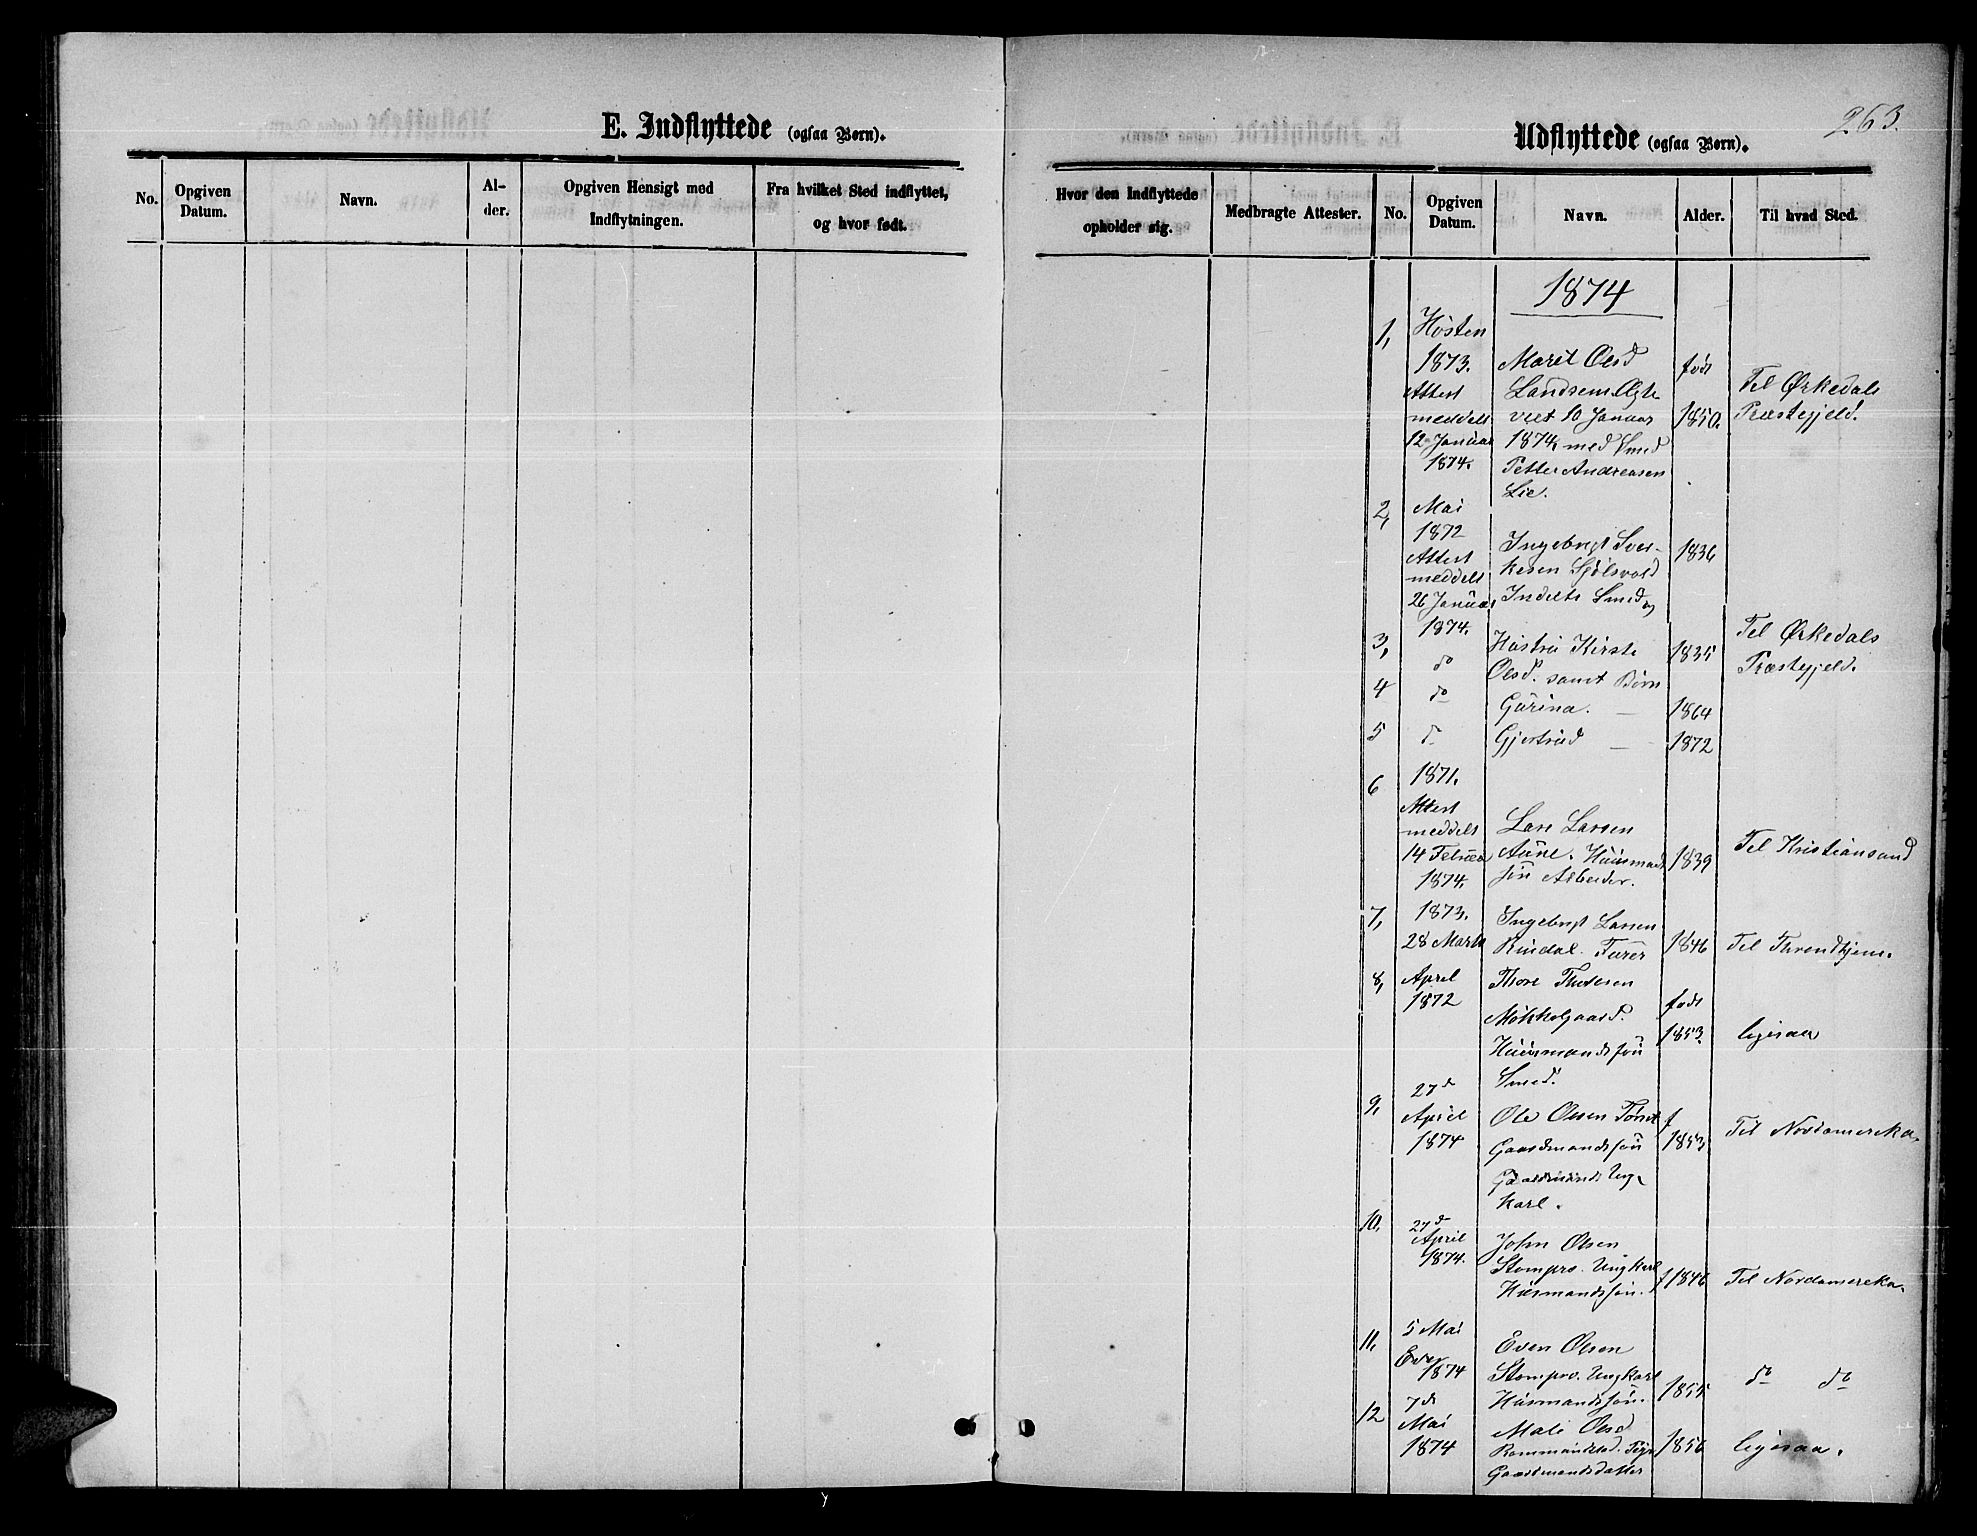 E. Indflyttede (ogsaa Børn).
No.
Opgiven
Datum.
Navn.
Al-
der.
Opgiven Hensigt med
Indflytningen.
Fra hvilket Sted indflyttet,
og hvor født.
263.
Udflyttede (ogsaa Børn).
Hvor den Indflyttede
opholder sig.
Medbragte Attester.
No.
Opgiven
Datum.
Navn.
Alder.
Til hvad Sted.
1874
1, Høsten
1873. Marit Olsd født Til Ørkedals
Attest Landsem Ægte
meddelt viet 10 Januar 1850. Præstegjeld.
12 Januar 1874, med Smed
1874. Petter Andreasen
Lie.
2, Mai
1872 Ingebrigt Sver- 1836
Attest
meddelt kesen
26 Januar Inderste Smed og
1874. Til Ørkedals
3, do Hustru Kirsti 1835 Præstegjeld.
Olsd. samt Børn
4 do Gurina. — 1864
5 do Gjertrud — 1872
6 1871.
Attest
meddelt Lars Larsen
14 Februar Aune. Huusmands 1839 Til Kristiansund
1874. søn Arbeider.
7, 1873. Ingebrigt Larsen
28 Marts Rindal. 1846 Til Throndhjem.
8, April Thore Thoresen
1872 født
Møkkelgaard. 1853. ligesaa
Huusmandssøn
Smed.
9, 27de
April Ole Olsen f Til Nordamerika.
1874 Gaardmandssøn 1853
Ung-
karl.
10, 27de
April John Olsen
1874. Stompro. Ungkarl
Husmandssøn. f 1846 Til Nordamerika.
11, 5 Mai Even Olsen
Even
1874 Stompro. Ungkarl do do
Husmandssøn. 1855
12 7de
Mai Mali Olsd
1874 1856 ligesaa.
Gaardmandsdatter